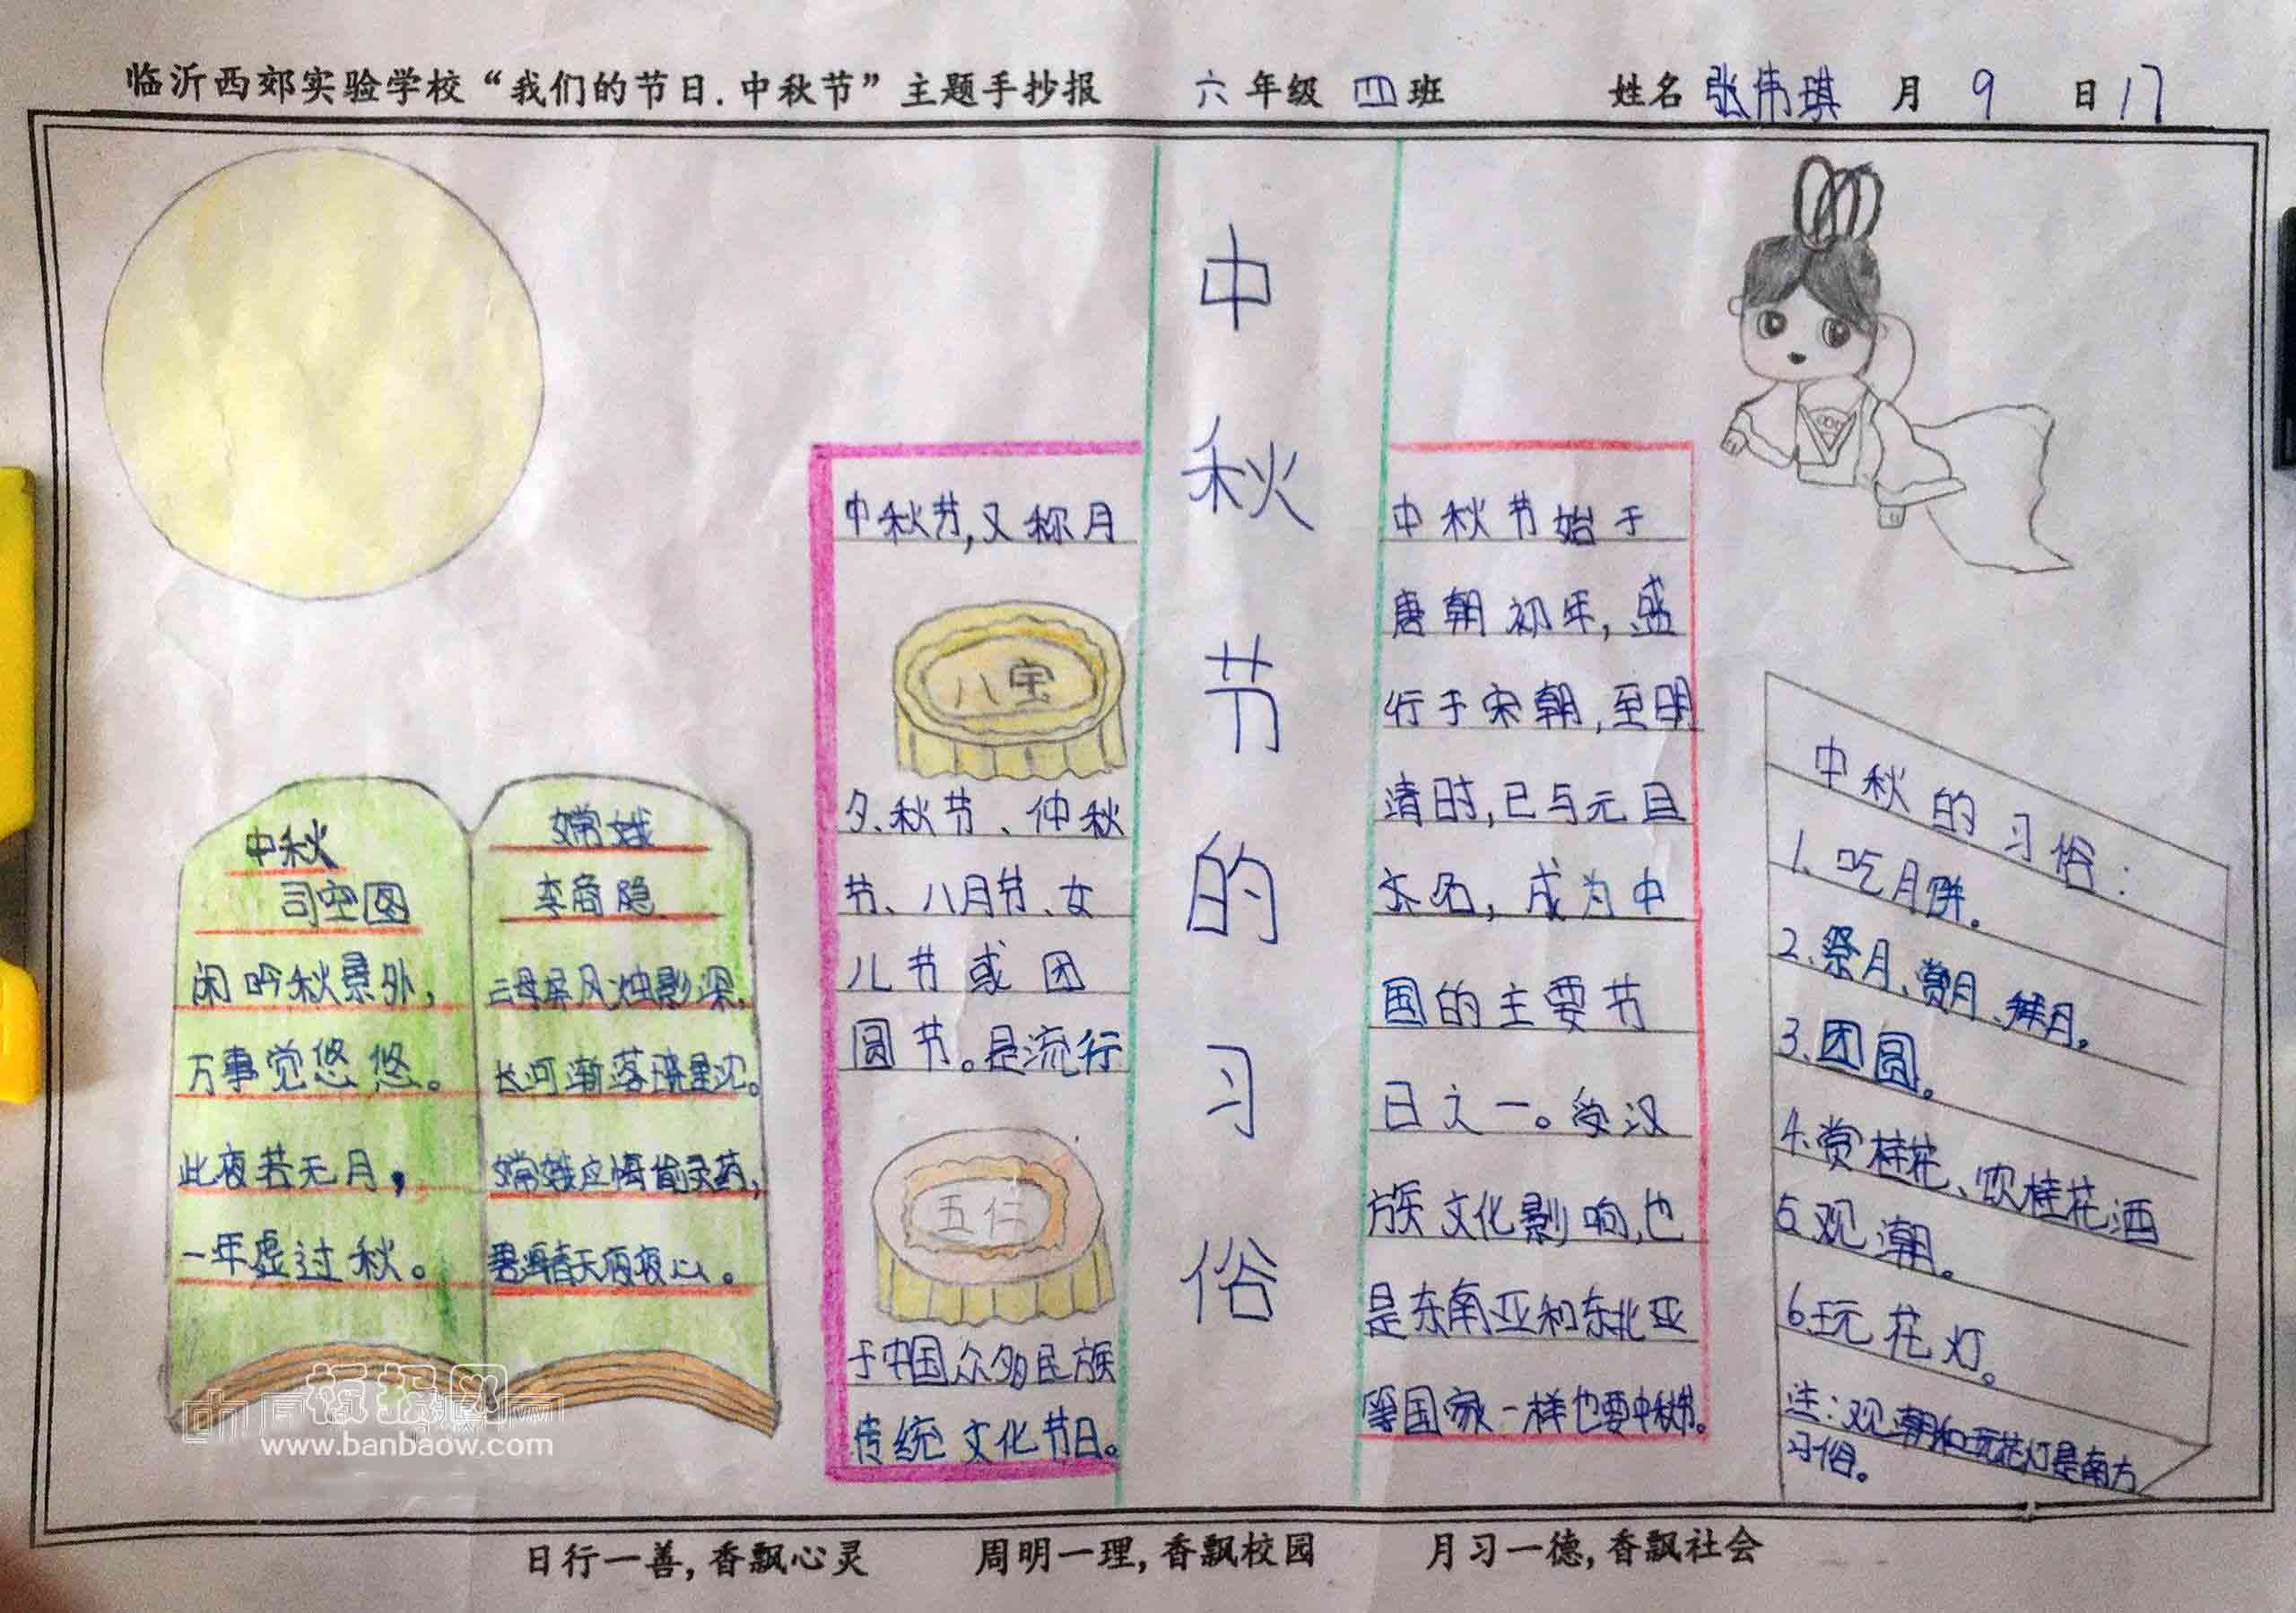 临沂西郊实验学校“我们的节日.中秋节”主题手抄报 六年级 四班 姓名 张伟琪 月 9 日 17
中秋
司空图
闲吟秋景外，
万事觉悠悠。
此夜若无月，
一年虚过秋。
嫦娥
李商隐
云母屏风烛影深，
长河渐落晓星沉。
嫦娥应悔偷灵药，
碧海青天夜夜心。
中秋节，又称月
八宝
夕、秋节、仲秋
节、八月节、女
儿节或团
圆节。是流行
五仁
于中国众多民族
传统文化节日。
中秋节的习俗
中秋节始于
唐朝初年，盛
行于宋朝，至明
清时，已与元旦
齐名，成为中
国的主要节
日之一。受汉
族文化影响，也
是东南亚和东北亚
等国家一样也要中秋节。
中秋的习俗：
1、吃月饼。
2、祭月、赏月、拜月。
3、团圆。
4、赏桂花、饮桂花酒
5、观潮。
6、玩花灯。
注：观潮和玩花灯是南方
习俗。
中国板报网
www.banbaow.com
日行一善，香飘心灵 周明一理，香飘校园 月习一德，香飘社会